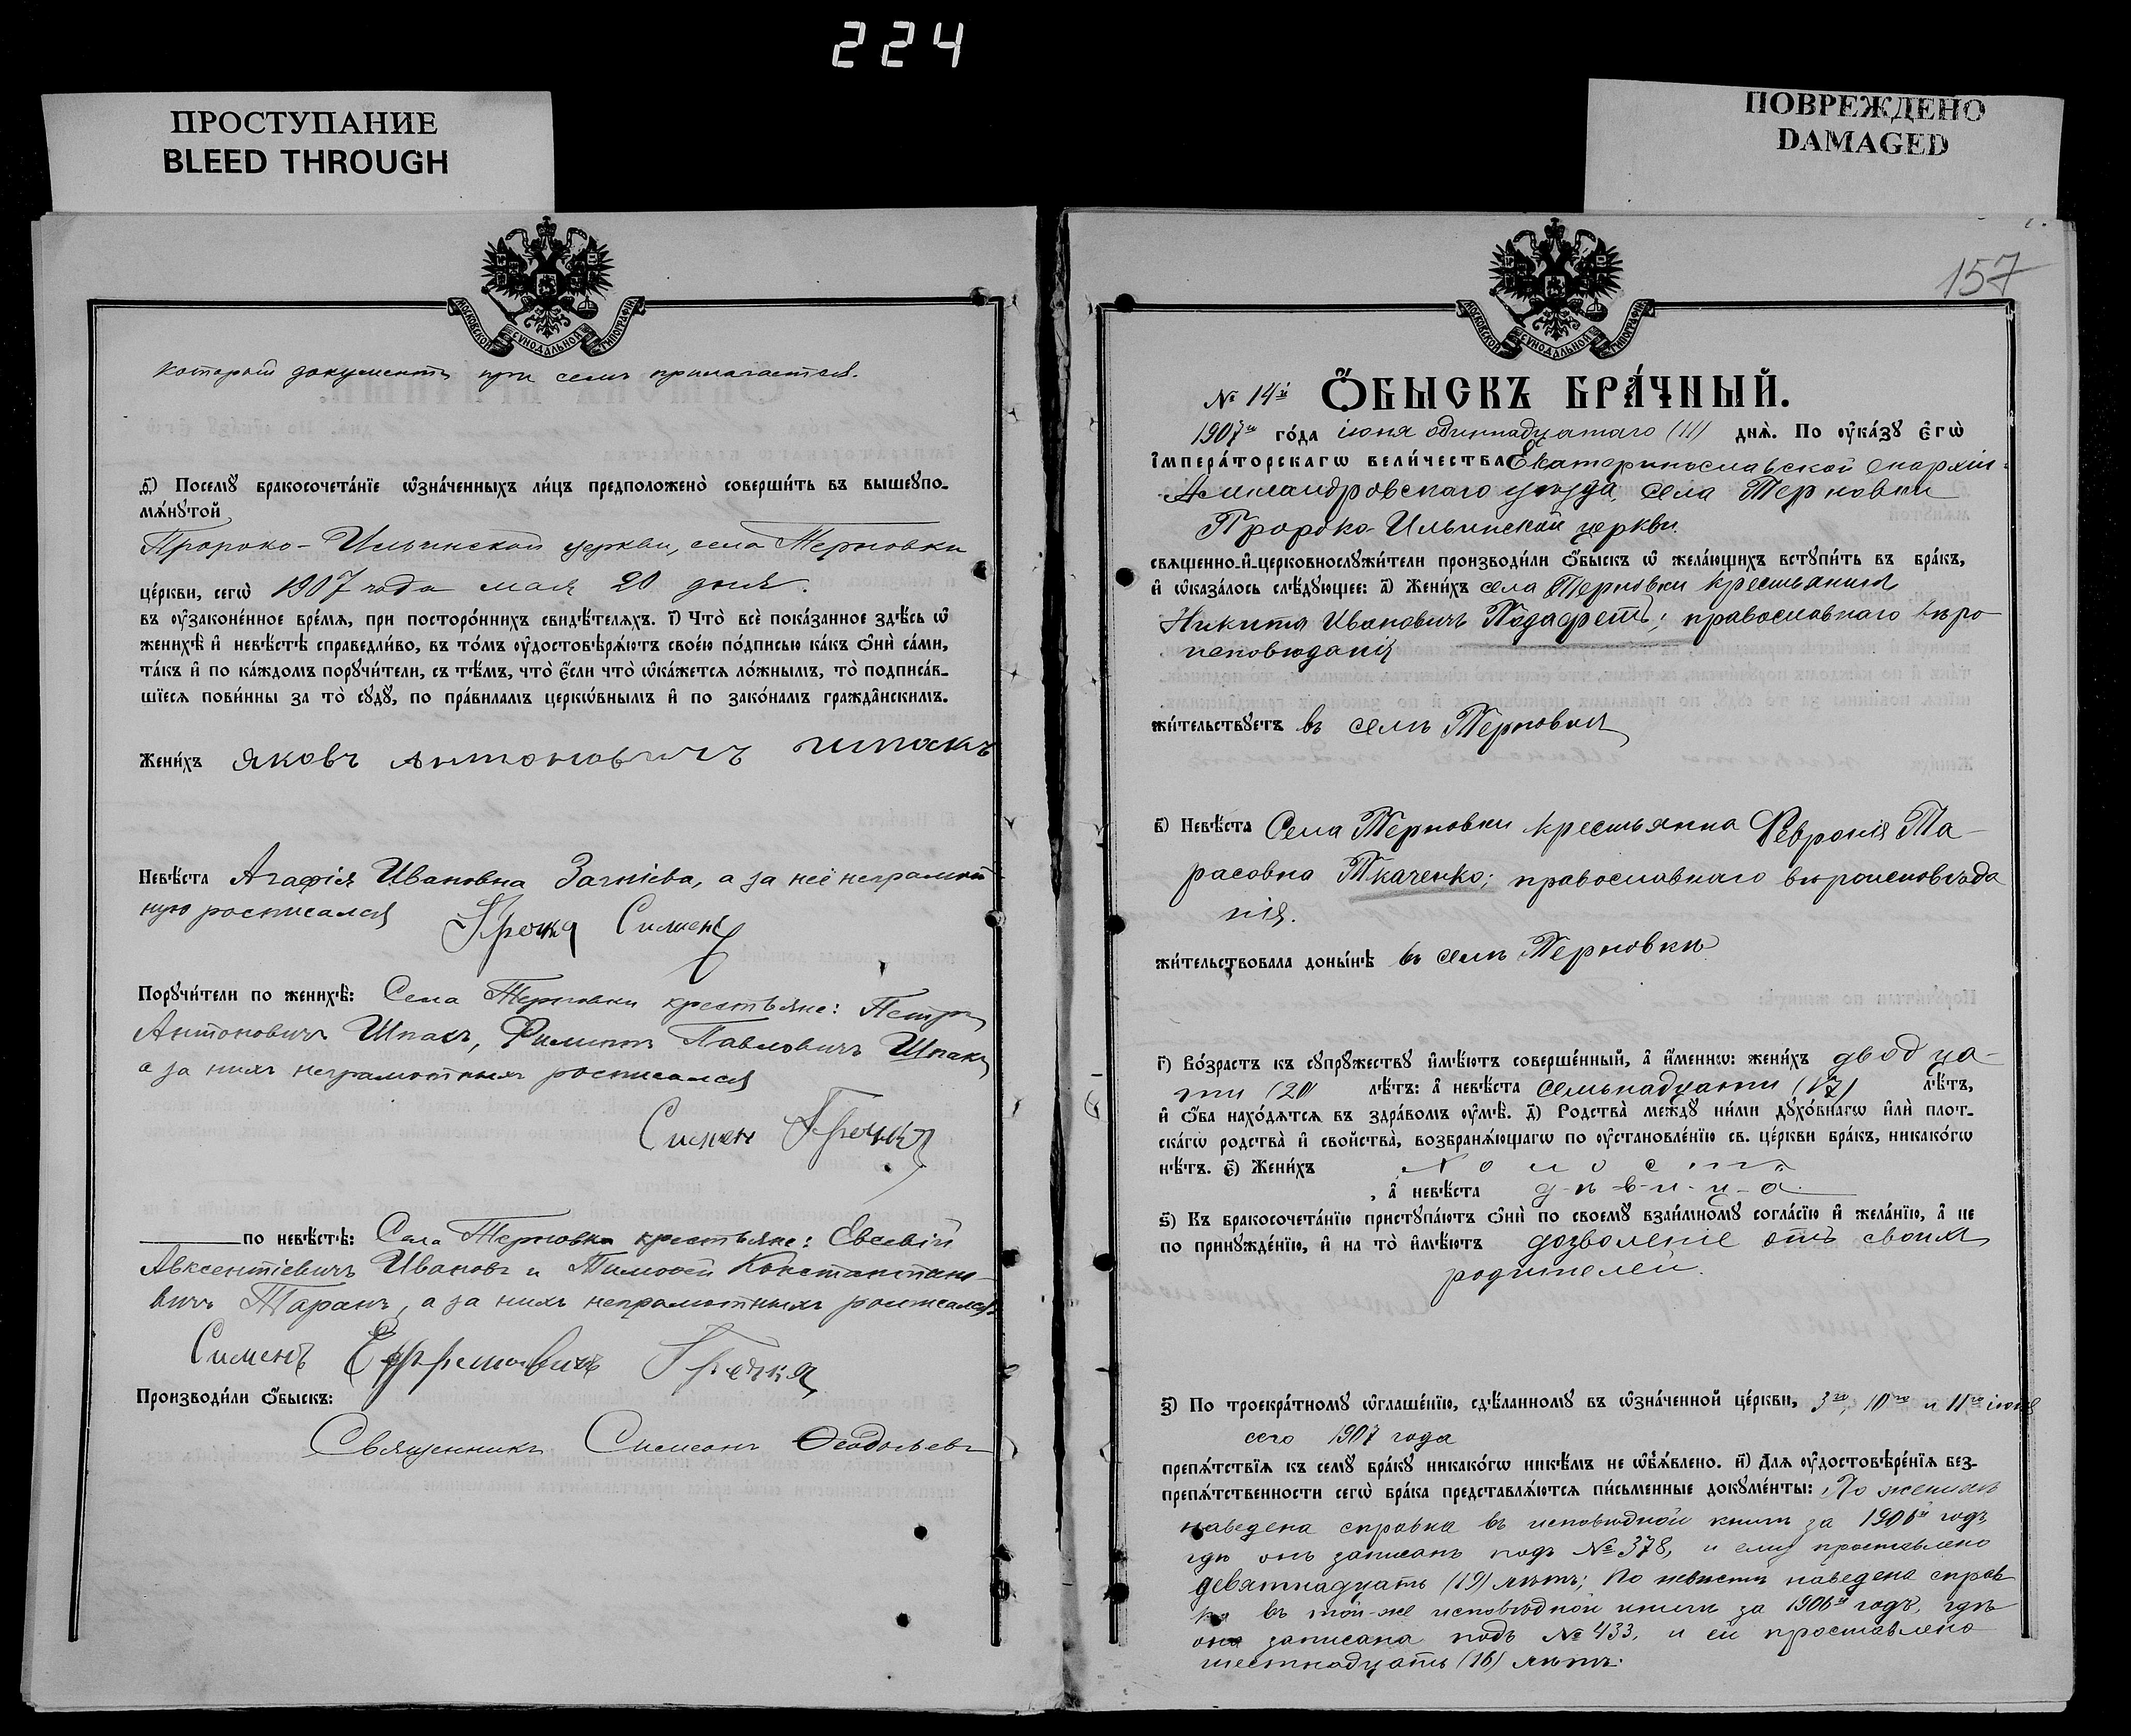 224
ПРОСТУПАНИЕ
BLEED THROUGH
ПОВРЕЖДЕНО
DAMAGED
МОСКОВСКОЙ СУНОДАЛЬНОЙ ТИПОГРАФІИ
который документъ при семъ прилагается.
б҃) Посемꙋ бракосочета́нїе ѡ҆зна́ченныхъ ли́цъ предположено̀ соверши́ть въ вышеꙋпо-
мѧ́нꙋтой
Пророко-Ильинской церкви, села Терновки
це́ркви, сегѡ̀ 1907 года мая 20 дня.
въ ѹ҆зако́ненное вре́мѧ, при посторо́ннихъ свидѣ́телѧхъ. г҃і) Что̀ всѐ пока́занное здѣ́сь ѡ҆
женихѣ̀ и҆ невѣ́стѣ справедли́во, въ то́мъ ѹ҆достовѣрѧ́ютъ свое́ю по́дписью ка́къ ѻ҆нѝ са́ми,
та́къ и҆ по ка́ждомъ порꙋчи́тели, съ тѣ́мъ, что̀ є҆́сли что̀ ѡ҆ка́жетсѧ ло́жнымъ, то̀ подписа́в-
шїесѧ пови́нны за то̀ сꙋдꙋ̀, по пра́виламъ церкѡ́внымъ и҆ по зако́намъ гражда́нскимъ.
Жени́хъ Яковъ Антоновичъ Шпакъ
Невѣ́ста Агафія Ивановна Загнієва, а за неё неграмот
ную росписался Гречка Сименъ
Порꙋчи́тели по женихѣ̀: Села Терновки крестьяне: Петръ
Антоновичъ Шпакъ, Филиппъ Павловичъ Шпакъ
а за нихъ неграмотныхъ росписался
Симен Гречка
по невѣ́стѣ: Села Терновки крестьяне: Евсевій
Авксентіевичъ Ивановъ и Тимофей Константино-
вичъ Таранъ, а за нихъ неграмотныхъ росписался
Сименъ Ефремовичъ Гречка
Производи́ли ѻ҆́быскъ:
Священникъ Симеонъ Ѳеодосьевъ
157
МОСКОВСКОЙ СУНОДАЛЬНОЙ ТИПОГРАФІИ
№ 14й Ѻ҆́БЫСКЪ БРА́ЧНЫЙ.
1907го го́да іюня одиннадцатаго (11) днѧ̀. По ѹ҆ка́зꙋ є҆гѡ̀
і҆мпера́торскагѡ вели́чества Екатеринославской епархіи
Александровскаго уѣзда, села Терновки
Пророко-Ильинской церкви
свѧщенно-и҆-церковнослꙋжи́тели производи́ли ѻ҆́быскъ ѡ҆ жела́ющихъ встꙋпи́ть въ бра́къ,
и҆ ѡ҆каза́лось слѣ́дꙋющее: а҃) Жени́хъ села Терновки крестьянинъ
Никита Ивановичъ Падафетъ; православнаго вѣро
исповѣданія
жи́тельствꙋетъ въ селѣ Терновкѣ
в҃) Невѣ́ста Села Терновки крестьянка Февронія Та-
расовна Ткаченко; православнаго вѣроисповѣда
нія.
жи́тельствовала доны́нѣ въ селѣ Терновкѣ
г҃) Во́зрастъ къ сꙋпрꙋ́жествꙋ и҆мѣ́ютъ соверше́нный, а҆ и҆́меннѡ: жени́хъ двадца-
ти (20) лѣ́тъ: а҆ невѣ́ста семьнадцати (17) лѣ́тъ,
и҆ ѻ҆́ба нахо́дѧтсѧ въ здра́вомъ ѹ҆мѣ̀. д҃) Родства̀ междꙋ̀ ни́ми дꙋхо́внагѡ и҆лѝ плот-
ска́гѡ родства̀ и҆ свойства̀, возбранѧ́ющагѡ по ѹ҆становле́нїю св. це́ркви бра́къ, никако́гѡ
нѣ́тъ. є҃) Жени́хъ холостъ
, а҆ невѣ́ста дѣвица.
ѕ҃) Къ бракосочета́нїю пристꙋпа́ютъ ѻ҆нѝ по своемꙋ̀ взаи́мномꙋ согла́сїю и҆ жела́нїю, а҆ не
по принꙋжде́нїю, и҆ на то̀ и҆мѣ́ютъ дозволеніе отъ своихъ
родителей.
з҃) По троекра́тномꙋ ѡ҆глаше́нїю, сдѣ́ланномꙋ въ ѡ҆зна́ченной це́ркви, 3го, 10го и 11го іюня
сего 1907 года
препѧ́тствїѧ къ семꙋ̀ бра́кꙋ никако́гѡ никѣ́мъ не ѡ҆б̾ѧ́влено. и҃) Длѧ ѹ҆достовѣре́нїѧ без-
препѧ́тственности сегѡ̀ бра́ка представлѧ́ютсѧ пи́сьменные докꙋме́нты: По женихѣ
наведена справка въ исповѣдной книгѣ за 1906й годъ,
гдѣ онъ записанъ подъ № 378, и ему проставлено
девятнадцать (19) лѣтъ; По невѣстѣ наведена справ
ка въ той-же исповѣдной книгѣ за 1906й годъ, гдѣ
она записана подъ № 433, и ей проставлено
шестнадцать (16) лѣтъ.